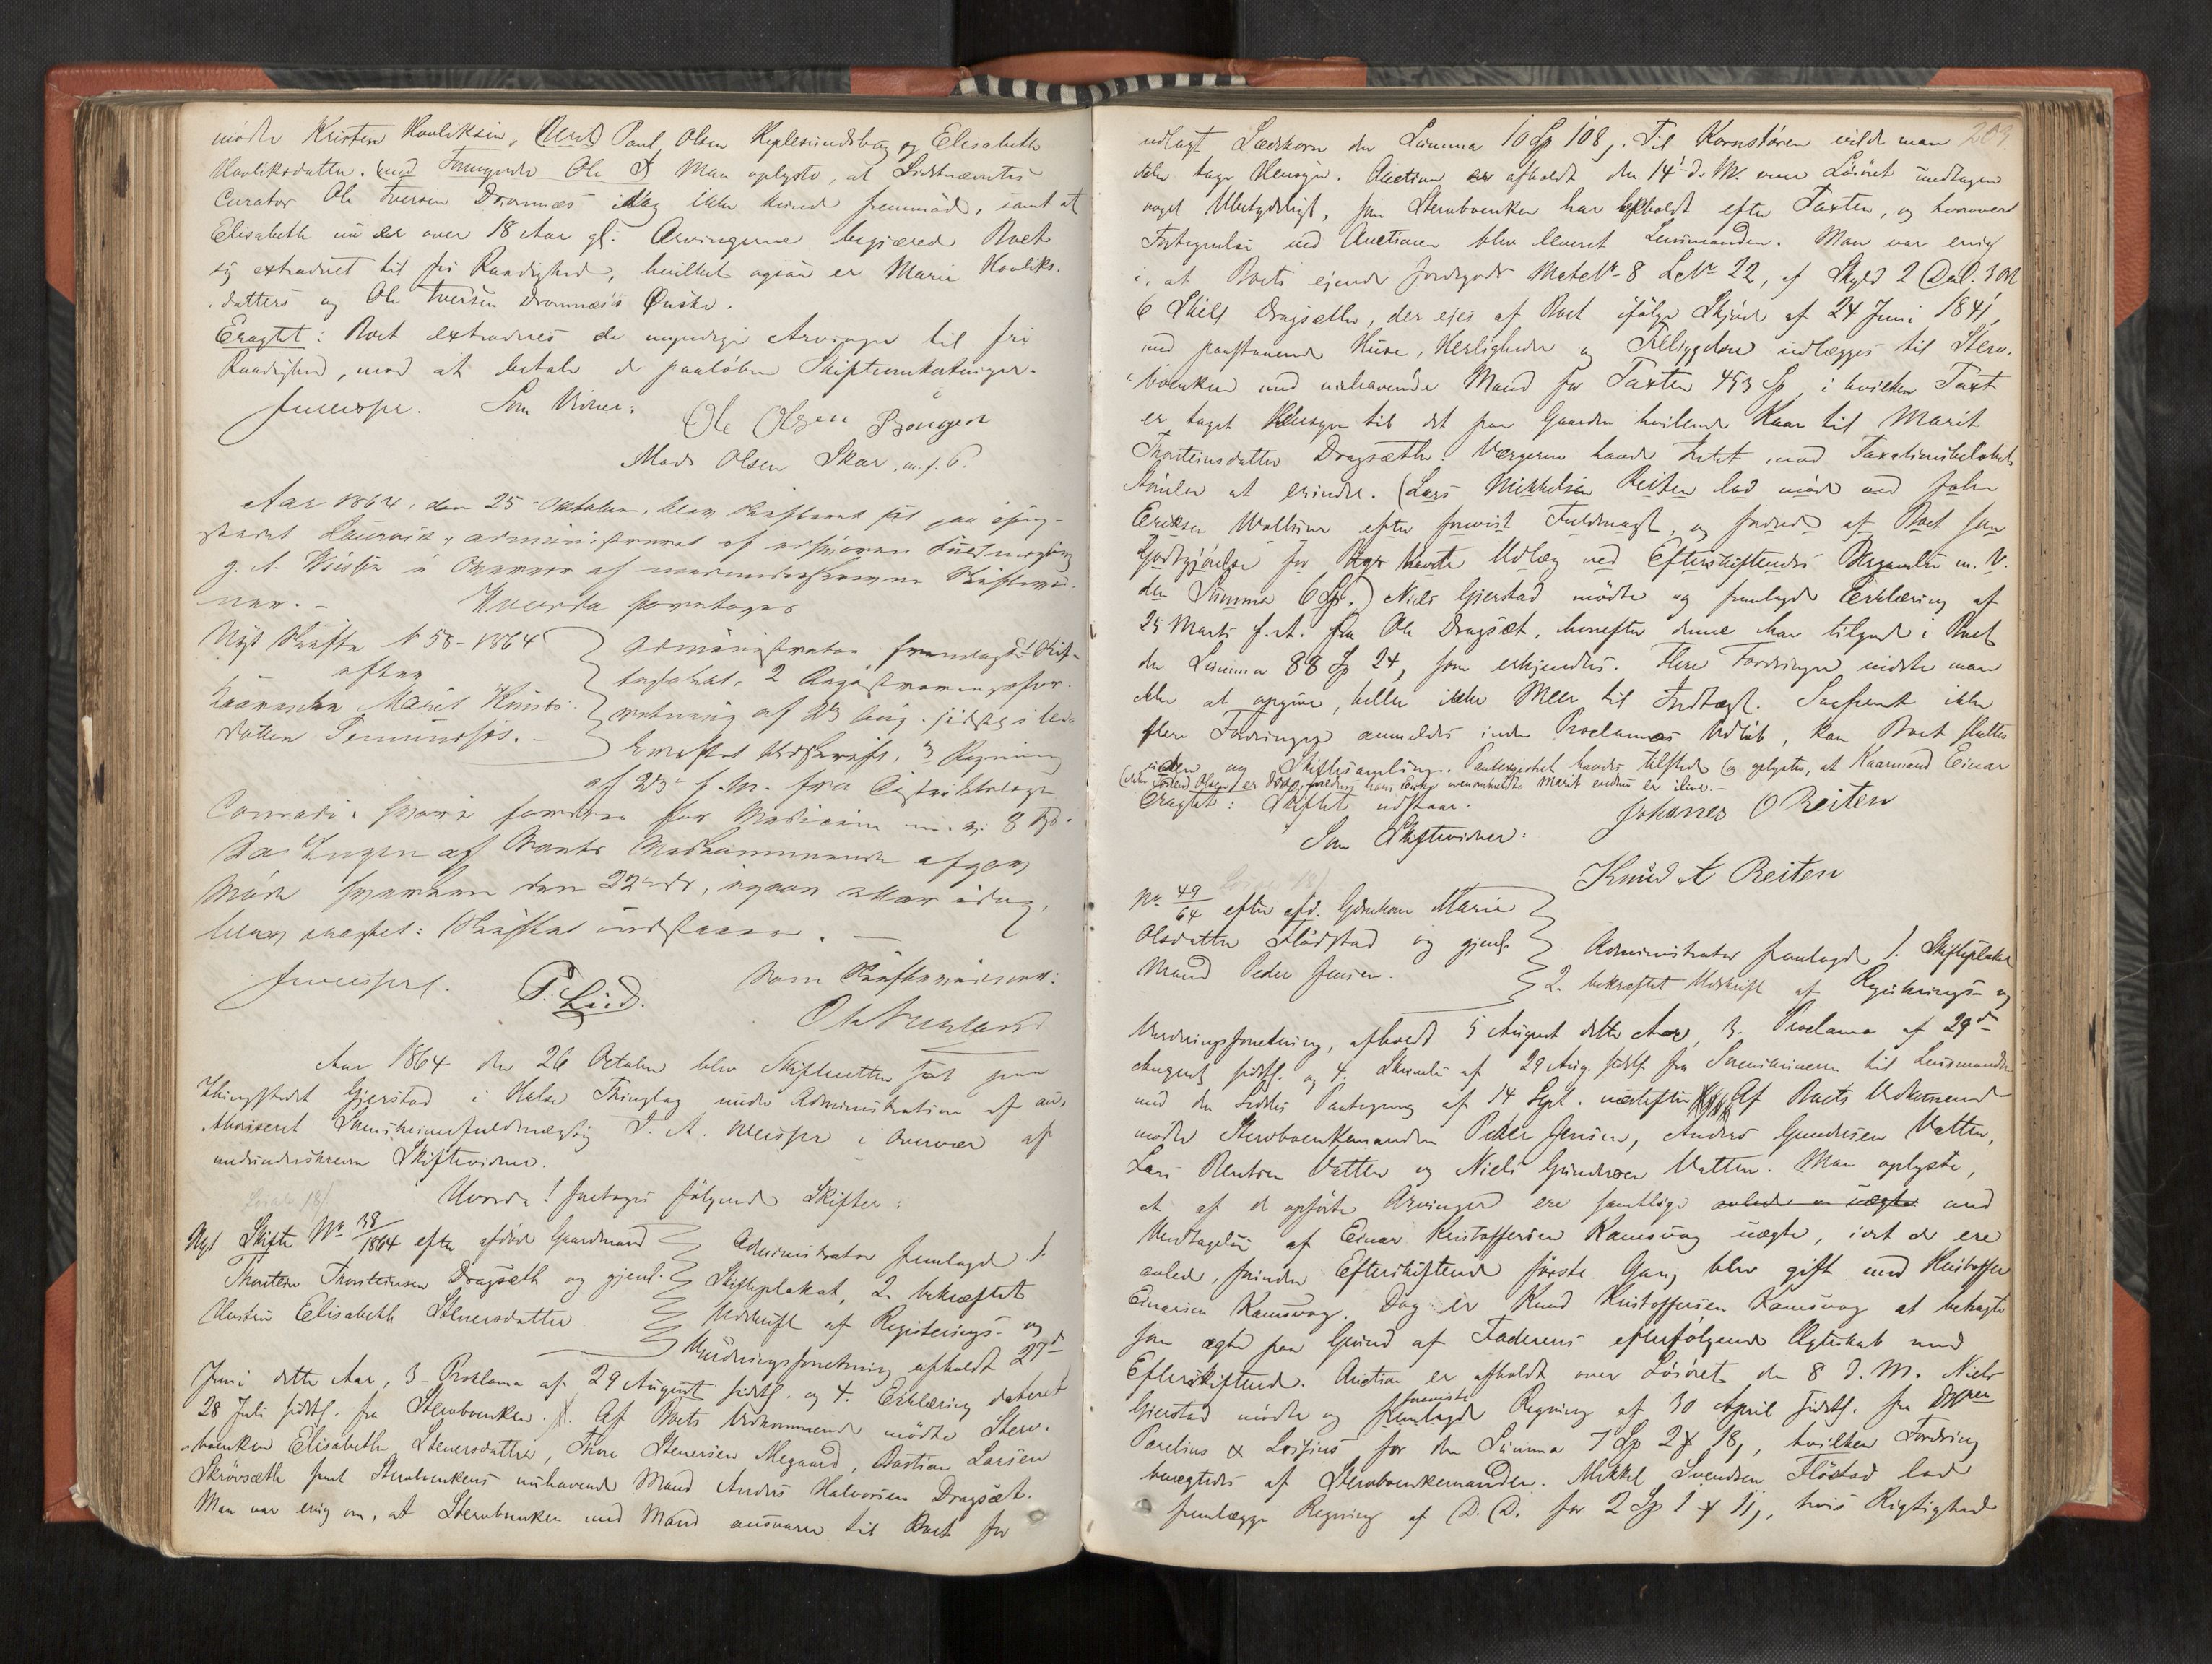 mødte Kristen Havliksen, Paul Olsen Keplesundsbug og Elisabeth
Havliksdatter. Man oplyste, at Sidstnævntes
Curator Ole Iversen Dromnæs idag ikke kunde fremmøde, samt at
Elisabeth nu er over 18 Aar gl. Arvingerne begjærede Boet
sig extraderet til fri Raadighed, hvilket ogsaa er Marie Havliks-
datters og Ole Iversen Dromnæs's Ønske.
Eragtet: Boet extraderes de myndige Arvinger til fri
Raadighed, mod at betale de paaløbne Skifteomkostninger.
Som Vidner:
Ole Olsen
Mads Olsen Skar, m. f. P.
Aar 1864, den 25 Oktober, blev Skifteret sat paa Thing-
stedet Laurvik, administreret af
i Overvær af medunderskrevne Skiftevid-
ner. -
Hvorda foretoges
Nyt Skifte N 58-1864
efter
Marit Knuds-
datter
Administrator fremlagde 1 Skif-
teplakat, 2 Registreringsfor-
retning af 23 Aug. sidstl. i be-
kræftet Udskrift, 3 Regning
af 23 f. M. fra Distriktslæge
Conradi, hvori fordres for Medicin m. v. 3 Spd.
Da Ingen af Boets Vedkommende afgav
Møde den 22 ds, ogsaa idag,
blev eragtet: Skiftet udstaaer. -
P. Lied.
Som Skiftevidner:
Aar 1864 den 26 October blev Skifteretten sat paa
Thingstedet Gjerstad i Halse Thinglag under Administration af au-
thoriseret Sorenskriverfuldmægtig i Overvær af
medunderskrevne Skiftevidner.
Hvorda! foretoges følgende Skifter:
Nyt Skifte No 38/1864 efter afdøde Gaardmand
Thorsten Thorsteinsen Dragsæth og gjenl.
Hustru Elisabeth Stenersdatter
Administrator fremlagde 1.
Skifteplakat, 2. bekræftet
Udskrift af Registerings- og
Vurderingsforretning afholdt 27d
Juni dette Aar, 3. Proklama af 29 August sidstl. og 4. Erklæring dateret
28 Juli sidstl. fra Stervboenken. Af Boets Vedkommende mødte Sterv-
boenken Elisabeth Stenersdatter, Thore Stenersen Aegaard, Bastian Larsen
Skrøvsæth samt Stervboenkens nuhavende Mand Anders Halvorsen Dragsæt.
Man var enig om, at Stervboenken med Mand ansvarer til Boet for
203.
udlagt Sædekorn den Summa 10 Sp 108 s. Til Kornstøren vilde man
ikke tage Hensyn. Auction er afholdt den 14 d. M. over Løsøret undtagen
noget Ubetydeligt, som Stervboenken har beholdt efter Taxten, og hvorover
Fortegnelse ved Auctionen blev leveret Lensmanden. Man var enig
i, at Boets ejende Jordegods Mate No 8 LNo 22, af Skyld 2 Dal. 3 Ort
6 Skill Dragsæth, der ejes af Boet ifølge Skjøde af 24 Juni 1841,
med paastaaende Huse, Herligheder og Tilliggelser udlægges til Sterv-
boenken med nuhavende Mand for Taxten 453 Sp, i hvilken Taxt
er taget Hensyn til det paa Gaarden hvilende Kaar til Marit
Thorsteinsdatter Dragsæth. Værgerne havde Intet mod Taxationsbeløbets
Størrelse at erindre. (Lars Mikkelsen Reiten lod møde ved John
Eriksen Walsøen efter forevist Fuldmagt, og fordrede af Boet som
Godtgjørelse for havte Udlæg ved Efterskiftendes Begravelse m. V.
den Summa 6 Sp.) Niels Gjerstad mødte og fremlagde Erklæring af
25 Marts f. A. fra Ole Dragsæt, hvorefter denne har tilgode i Boet
den Summa 88 Sp 24 s, som erkjendtes. Flere Fordringer vidste man
ikke at opgive, heller ikke Meer til Indtægt. Saafremt ikke
flere Fordringer anmeldes inden Proclamas Udløb, kan Boet sluttes
uden ny Skiftesamling. Panteregistret havdes tilstede (og oplystes, at Kaarmand Einar
er død, medens hans Enke ovenmeldte Marit endnu er ilive. -
Eragtet: Skiftet udstaar.
Som Skiftevidner:
Johannes O Reiten
Knud A Reiten
No 49/64 efter afd. Gdmkone Marie
Olsdatter Flødstad og gjenl.
Mand Peder Jensen.
Administrator fremlagde 1. Skifteplakat
2. bekræftet Udskrift af Registrerings- og
Vurderingsforretning, afholdt 5 August dette Aar, 3. Proclama af 29d
August sidstl. og 4. Skrivelse af 29 Aug. sidstl. fra Sorenskriveren til Lensmanden
med den Sidstes Paategning af 14 Sept. næstefter. Af Boets Vedkommende
mødte Stervboenkemanden Peder Jensen, Anders Gundersen Vatten,
Lars Bentsen Vatten og Niels Gundersen Vatten. Man oplyste,
at af de opførte Arvinger ere samtlige med
Undtagelse af Einar Kristoffersen Ramsvog uægte, idet de ere
avlede, førinden Efterskiftende første Gang blev gift med Kristoffer
Einarsen Ramsvog. Dog er Knud Kristoffersen Ramsvog at betragte
som ægte paa Grund af Faderens efterfølgende Ægteskab med
Efterskiftende. Auction er afholdt over Løsøret den 8 d. M. Niels
Gjerstad mødte og foreviste Regning af 30 April sidstl. fra
Parelius & Lossius for den Summa 7 Sp 2 18 s, hvilken Fordring
benegtedes af Stervboenkemanden. Mikkel Svendsen Flöstad lod
fremlægge Regning af D. D. for 2 Sp 1 11 s, hvis Rigtighed